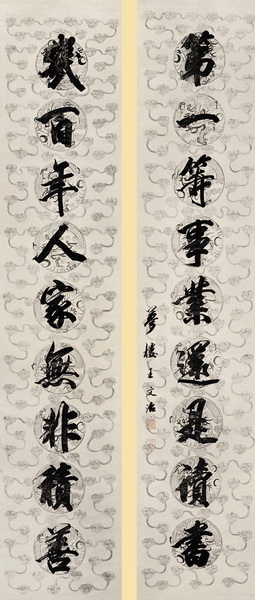 幾百年人家無非積善
第一等事業還是讀書
夢樓王文治